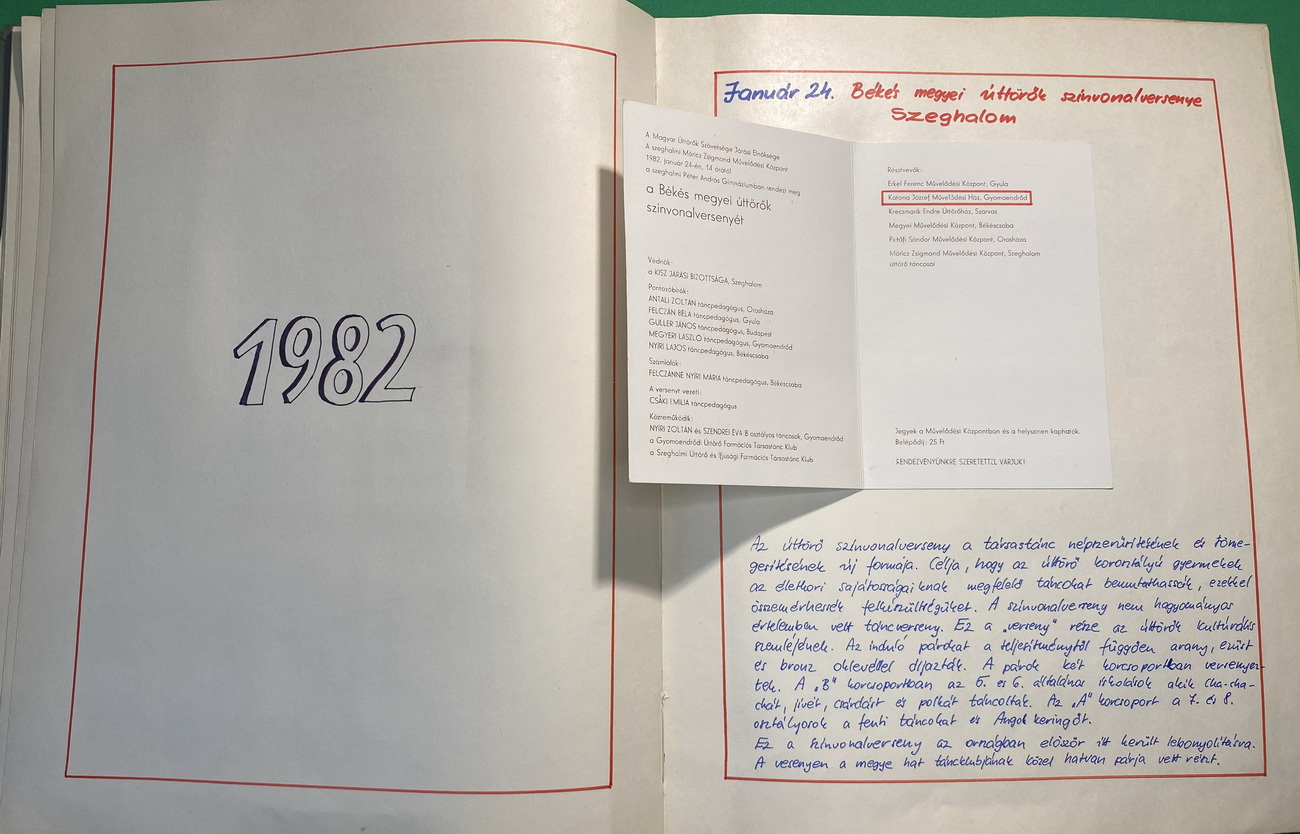 1982
Január 24. Békés megyei úttörők szinvonalversenye
Szeghalom
A Magyar Úttörők Szövetsége Járási Elnöksége
A szeghalmi Móricz Zsigmond Művelődési Központ
1982. január 24-én, 14 órától
a szeghalmi Péter András Gimnáziumban rendezi meg
a Békés megyei úttörők
színvonalversenyét
Védnök:
a KISZ JÁRÁSI BIZOTTSÁGA, Szeghalom
Pontozóbírók:
ANTALI ZOLTÁN táncpedagógus, Orosháza
FELCZÁN BÉLA táncpedagógus, Gyula
GULLER JÁNOS táncpedagógus, Budapest
MEGYERI LÁSZLÓ táncpedagógus, Gyomaendrőd
NYÍRI LAJOS táncpedagógus, Békéscsaba
Számlálók:
FELCZÁNNÉ NYÍRI MÁRIA táncpedagógus, Békéscsaba
A versenyt vezeti:
CSÁKI EMÍLIA táncpedagógus
Közreműködik:
NYÍRI ZOLTÁN és SZENDREI ÉVA B osztályos táncosok, Gyomaendrőd
a Gyomaendrődi Úttörő Formációs Társastánc Klub
a Szeghalmi Úttörő és Ifjúsági Formációs Társastánc Klub
Résztvevők:
Erkel Ferenc Művelődési Központ, Gyula
Katona József Művelődési Ház, Gyomaendrőd
Krecsmarik Endre Úttörőház, Szarvas
Megyei Művelődési Központ, Békéscsaba
Petőfi Sándor Művelődési Központ, Orosháza
Móricz Zsigmond Művelődési Központ, Szeghalom
úttörő táncosai
Jegyek a Művelődési Központban és a helyszínen kaphatók.
Belépődíj: 25 Ft
RENDEZVÉNYÜNKRE SZERETETTEL VÁRJUK!
Az úttörő szinvonalverseny a társastánc népszerüsitésének és töme-
gesitésének új formája. Célja, hogy az úttörő korosztályú gyermekek
az életkori sajátosságaiknak megfelelő táncokat bemutathassák, ezekkel
összemérhessék felkészültségüket. A szinvonalverseny nem hagyományos
értelemben vett táncverseny. Ez a „verseny" része az úttörők kultúrális
szemléjének. Az induló párokat a teljesitménytől függően arany, ezüst
és bronz oklevéllel dijazták. A párok két korcsoportban versenyez-
tek. A „B" korcsoportban az 5. és 6. általános iskolások akik cha-cha-
chát, jivét, csárdást és polkát táncoltak. Az „A" korcsoport a 7. és 8.
osztályosok a fenti táncokat és Angol keringőt.
Ez a szinvonalverseny az országban először itt került lebonyolitásra.
A versenyen a megye hat táncklubjának közel hatvan párja vett részt.